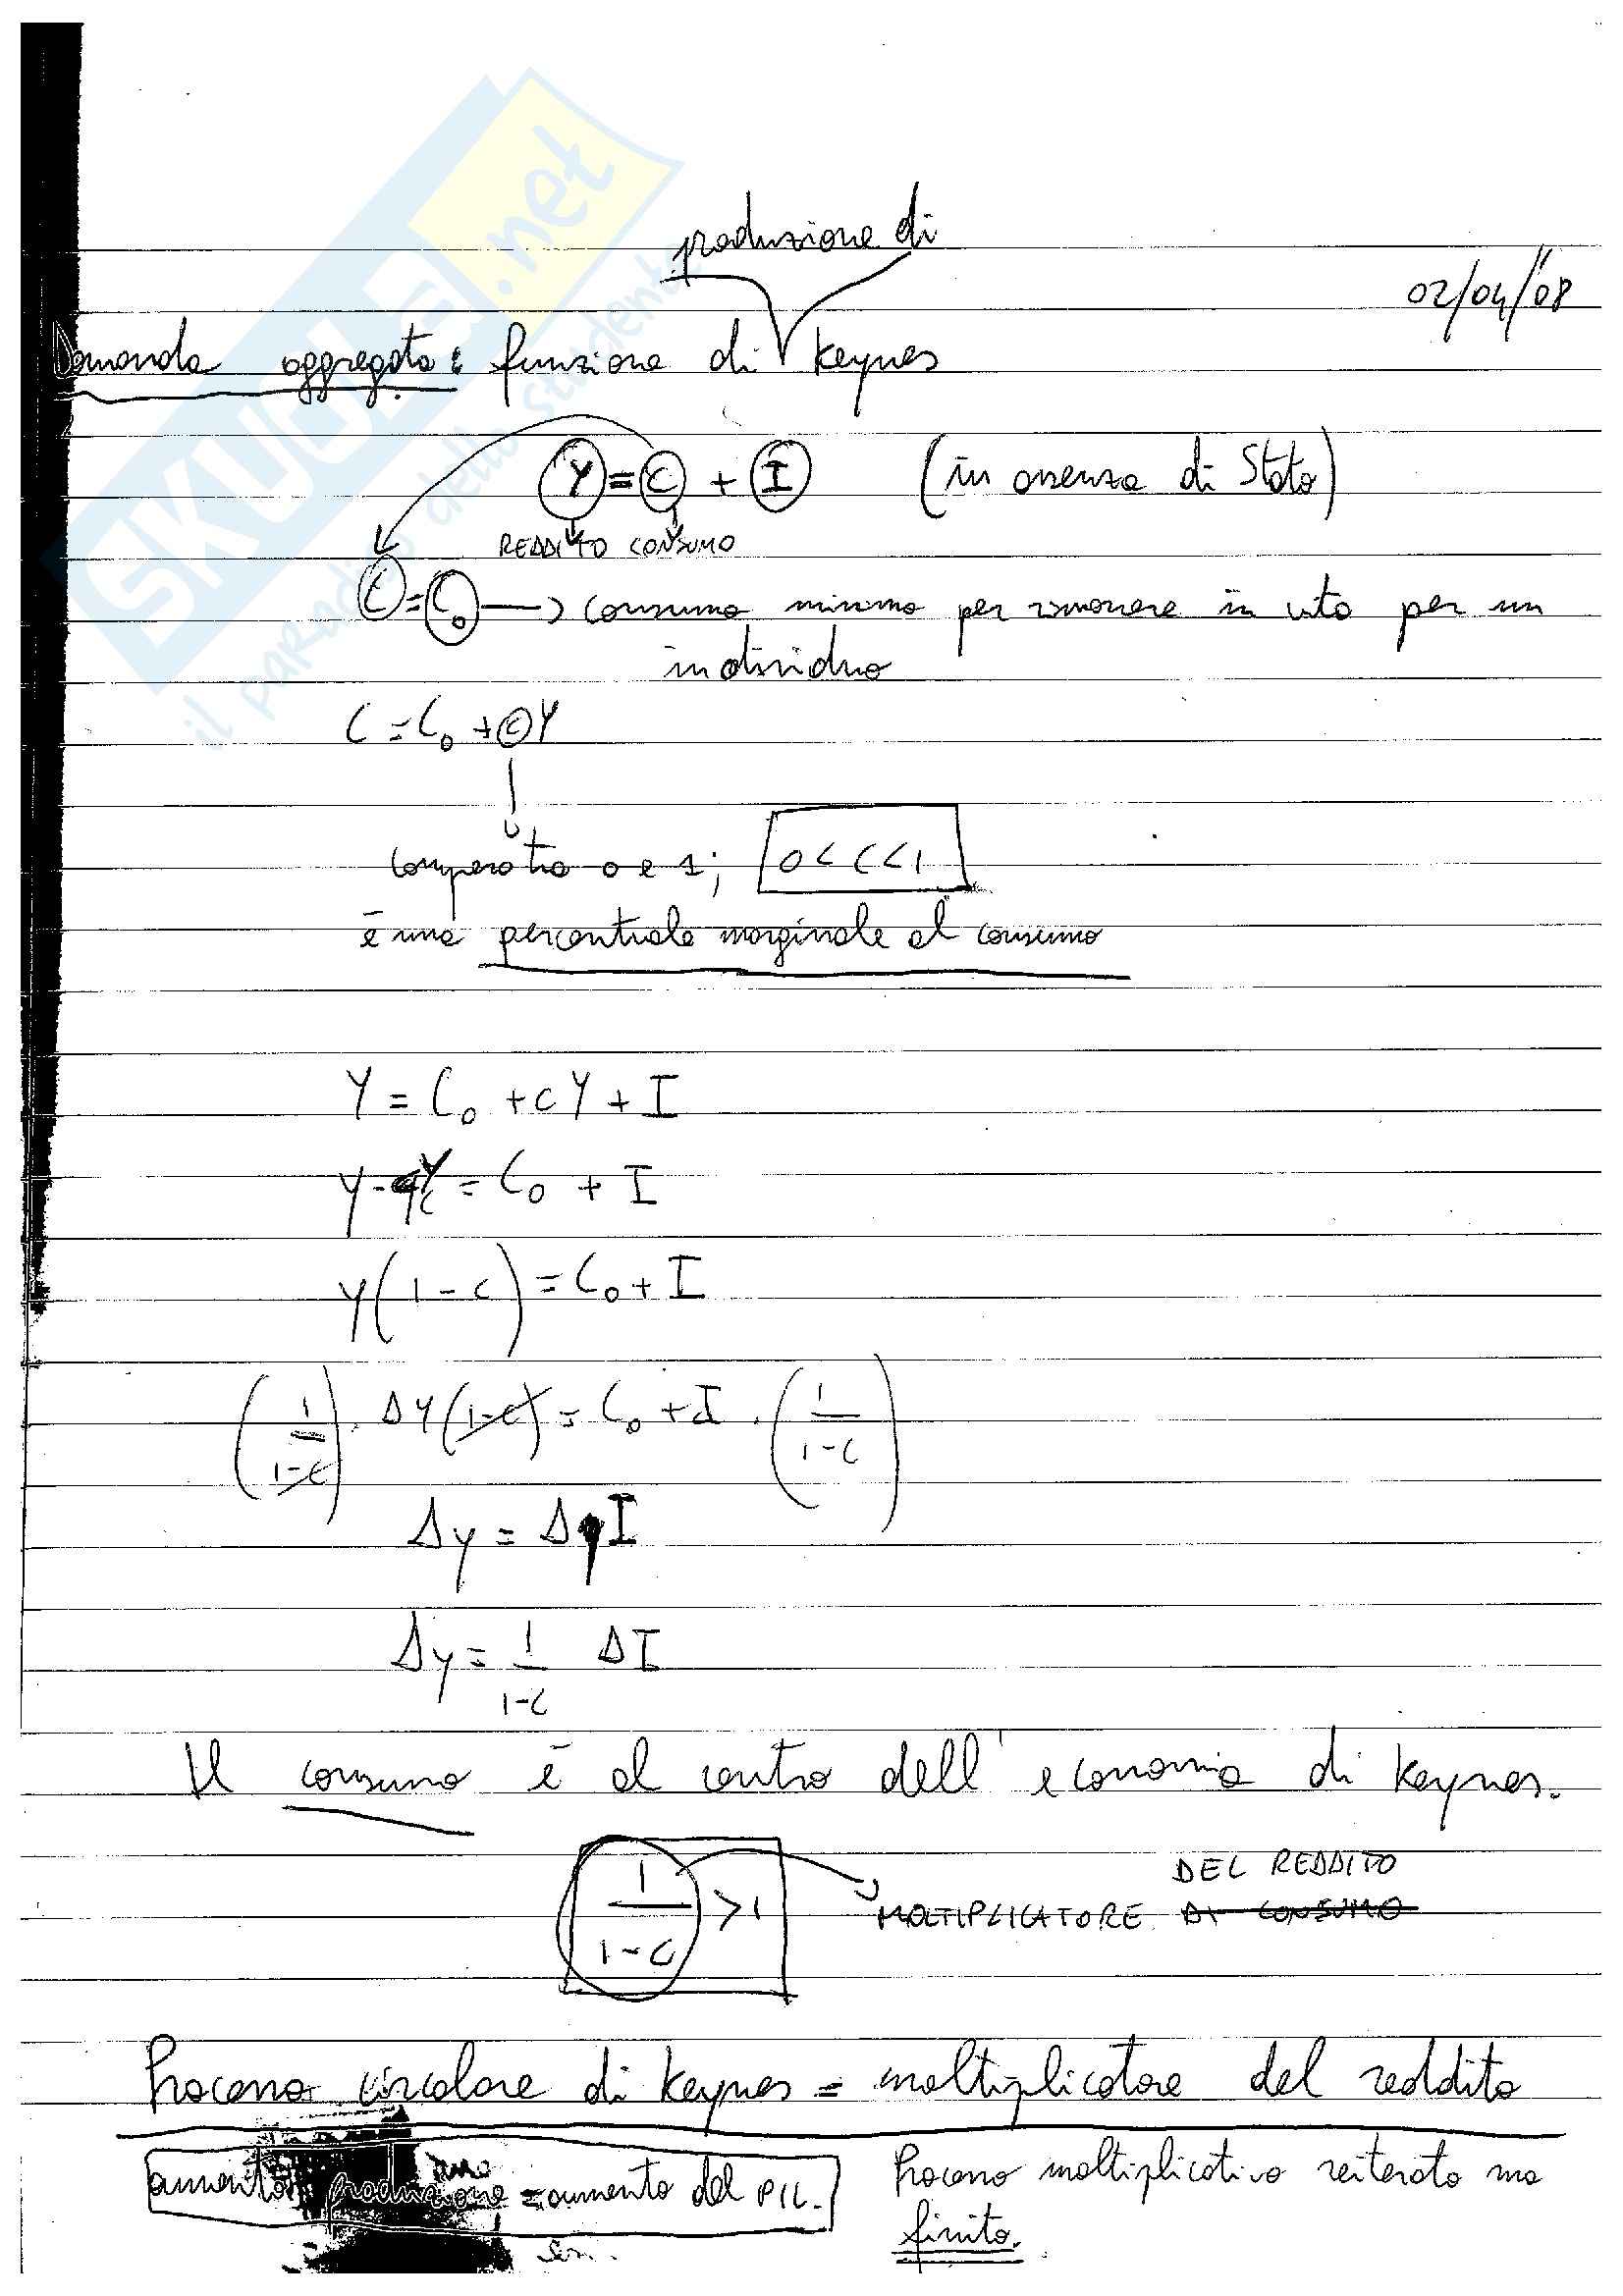 SKUOLA.net
il paradiso dello studente
produzione di
02/04/'08
Domanda aggregata: funzione di Keynes
Y = C + I (in assenza di Stato)
REDDITO CONSUMO
C = C₀ → consumo minimo per rimanere in vita per un
individuo
C = C₀ + cY
compreso tra 0 e 1; 0 < C < 1
è una percentuale marginale al consumo
Y = C₀ + cY + I
Y - cY = C₀ + I
Y(1-c) = C₀ + I
(1/1-c) · ΔY(1-c) = C₀ + I · (1/1-c)
Δy = Δ I
Δy = 1/1-c ΔI
Il consumo è al centro dell'economia di Keynes.
DEL REDDITO
1/1-c > 1 MOLTIPLICATORE DI CONSUMO
Processo circolare di Keynes = moltiplicatore del reddito
aumento produzione = aumento del PIL.
Processo moltiplicativo reiterato ma
finito.